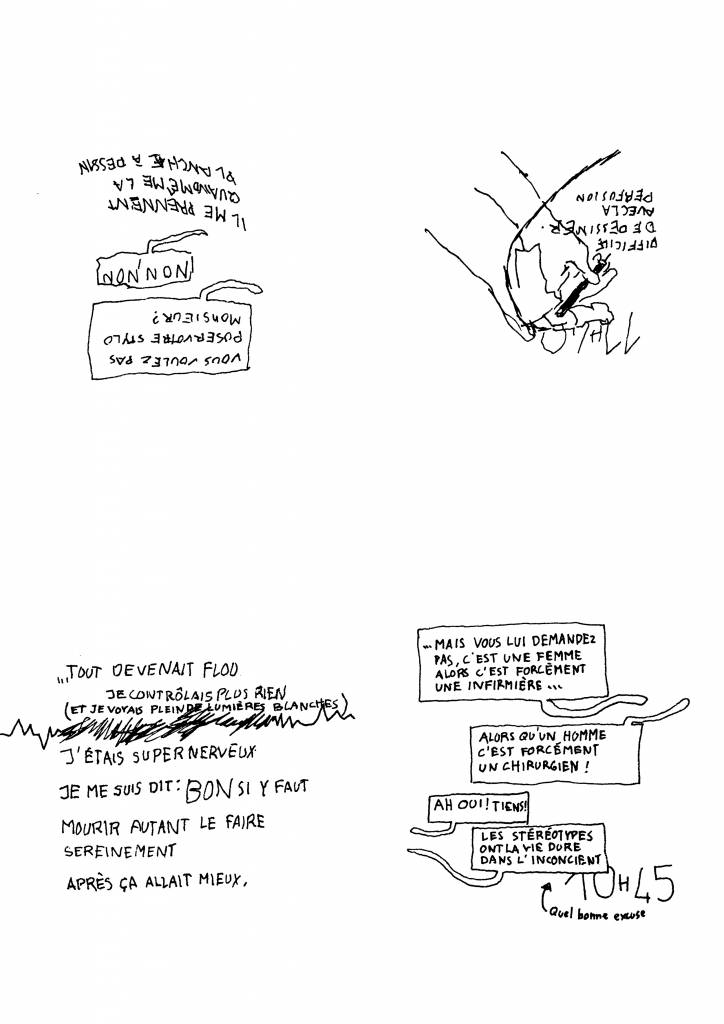 VOUS VOULEZ PAS
POSER VOTRE STYLO
MONSIEUR?
NON NON
IL ME PRENNENT
QUAND MÊME LA
PLANCHE À DESSIN
DIFFICILE
DE DESSINER.
AVEC LA
PERFUSION
...TOUT DEVENAIT FLOU
JE CONTRÔLAIS PLUS RIEN
(ET JE VOYAIS PLEIN DE LUMIÈRES BLANCHES)
J'ÉTAIS SUPER NERVEUX
JE ME SUIS DIT: BON SI Y FAUT
MOURIR AUTANT LE FAIRE
SEREINEMENT
APRÈS ÇA ALLAIT MIEUX.
...MAIS VOUS LUI DEMANDEZ
PAS, C'EST UNE FEMME
ALORS C'EST FORCÉMENT
UNE INFIRMIÈRE...
ALORS QU'UN HOMME
C'EST FORCÉMENT
UN CHIRURGIEN!
AH OUI! TIENS!
LES STÉRÉOTYPES
ONT LA VIE DURE
DANS L'INCONCIENT
10H45
Quel bonne excuse